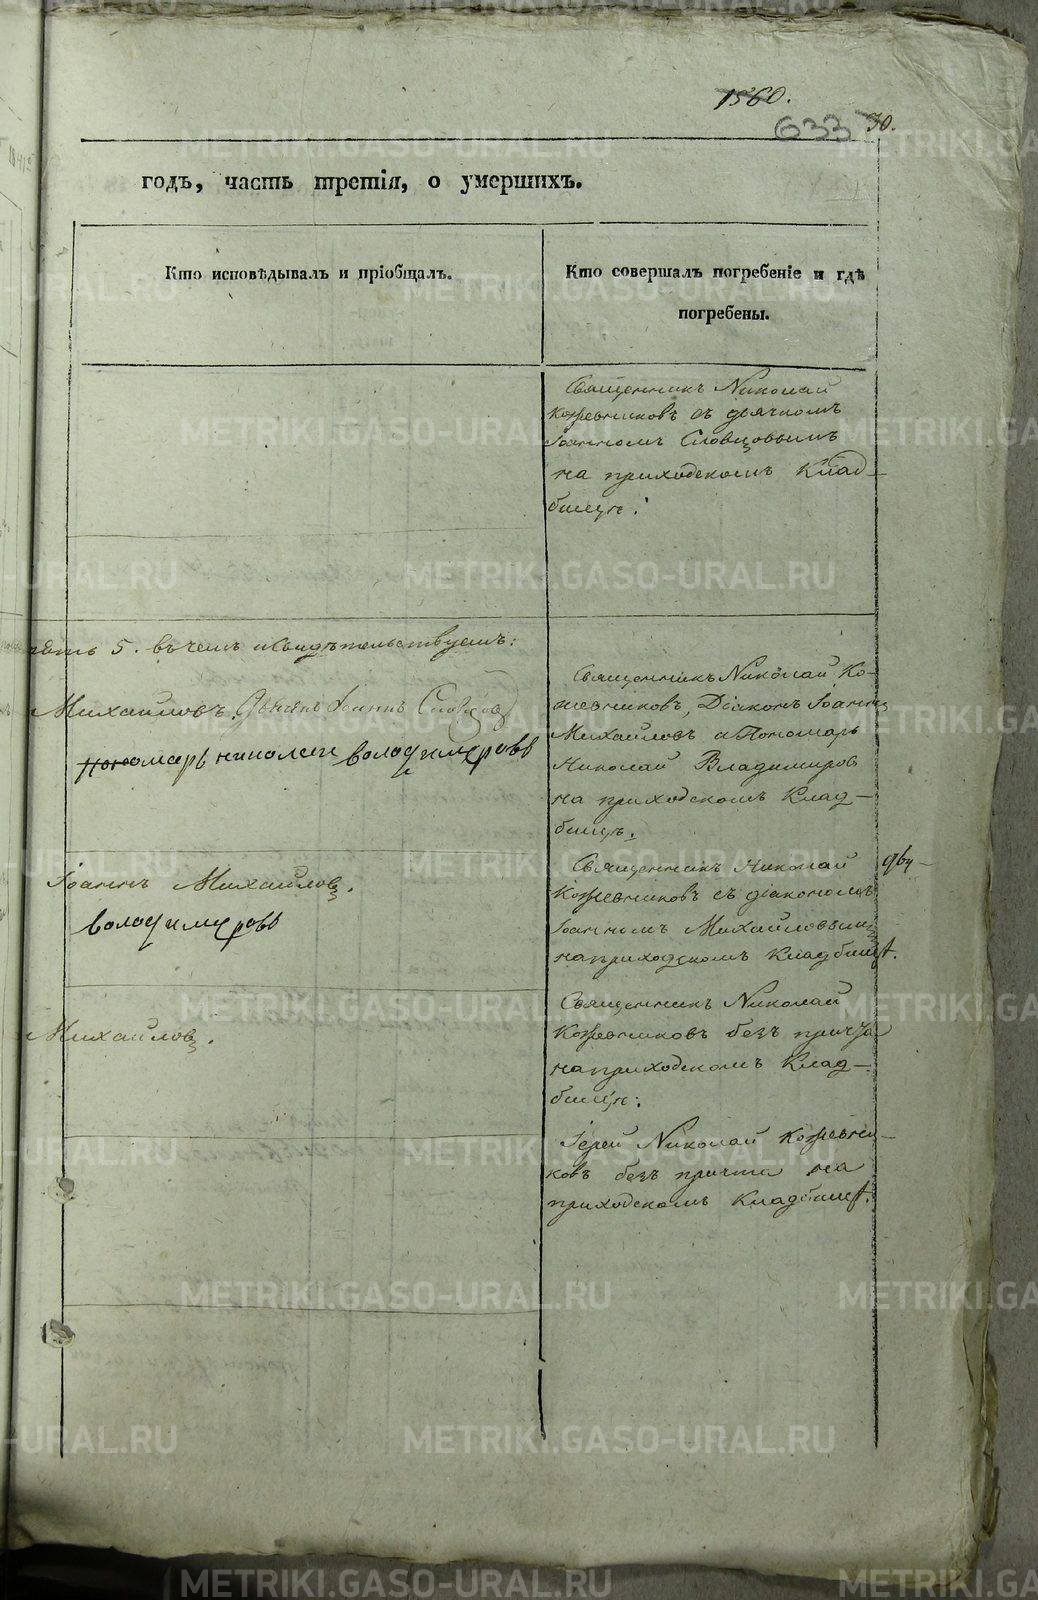 1560.
633 30.
годъ, часть третія, о умершихъ.
Кто исповѣдывалъ и пріобщалъ.
Кто совершалъ погребеніе и гдѣ
погребены.
Священникъ Николай
Кожевниковъ съ дьячкомъ
Іоанномъ Словцовымъ
на приходскомъ Клад-
бищѣ.
5. въ чемъ и свидѣтельствуемъ:
Михайловъ. Дьячекъ Іоаннъ Словцовъ
пономарь николай володимеровъ
Священникъ Николай Ко-
жевниковъ, Діаконъ Іоаннъ
Михайловъ и Пономарь
Николай Владимировъ
на приходскомъ Клад-
бищѣ.
Іоаннъ Михайловъ.
володимеровъ
Священникъ Николай
Кожевниковъ съ діакономъ
Іоанномъ Михайловымъ
на приходскомъ Кладбищѣ.
Михайловъ.
Священникъ Николай
Кожевниковъ безъ причта
на приходскомъ Клад-
бищѣ:
Іерей Николай Кожевни-
ковъ безъ причта на
приходскомъ Кладбищѣ.
METRIKI.GASO-URAL.RU